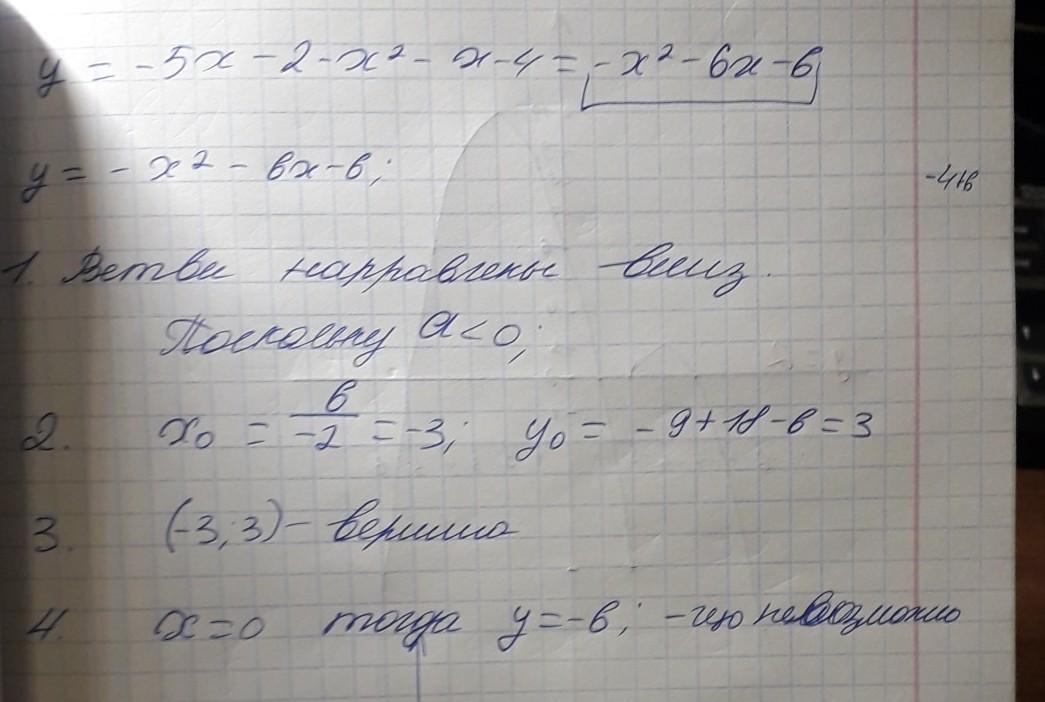 y = -5x - 2 - x² - x - 4 = -x² - 6x - 6
y = - x² - 6x - 6;
-4+6
1. Ветви направлены вниз.
Поскольку a < 0;
2. x₀ = 6/-2 = -3; y₀ = -9+18-6=3
3. (-3; 3) - вершина
4. x=0 тогда y=-6; - невозможно